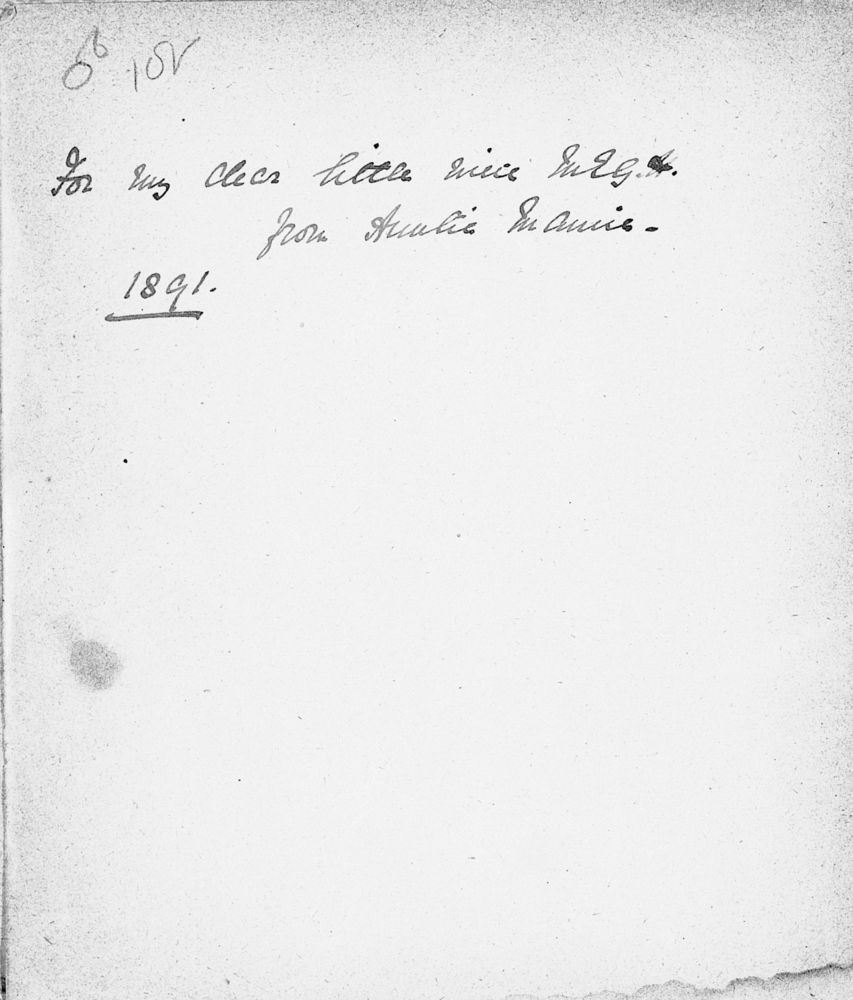 For my dear little niece
from Auntie Mamie -
1891.